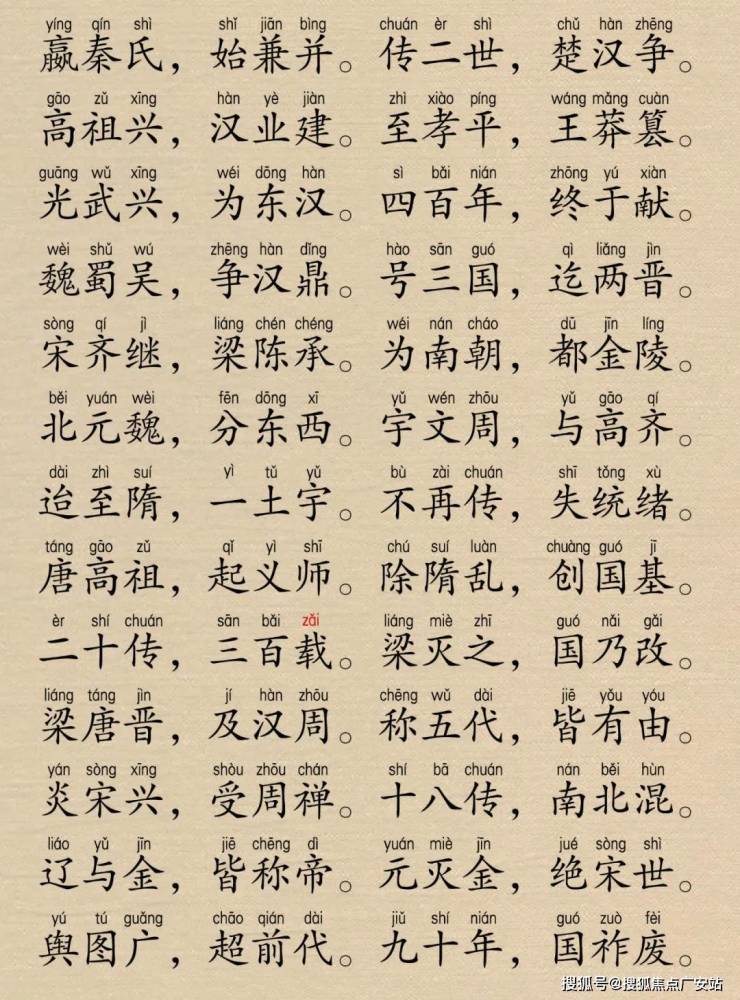 yíng qín shì shǐ jiān bìng chuán èr shì chǔ hàn zhēng
嬴秦氏，始兼并。传二世，楚汉争。
gāo zǔ xīng hàn yè jiàn zhì xiào píng wáng mǎng cuàn
高祖兴，汉业建。至孝平，王莽篡。
guāng wǔ xīng wéi dōng hàn sì bǎi nián zhōng yú xiàn
光武兴，为东汉。四百年，终于献。
wèi shǔ wú zhēng hàn dǐng hào sān guó qì liǎng jìn
魏蜀吴，争汉鼎。号三国，迄两晋。
sòng qí jì liáng chén chéng wéi nán cháo dū jīn líng
宋齐继，梁陈承。为南朝，都金陵。
běi yuán wèi fēn dōng xī yǔ wén zhōu yǔ gāo qí
北元魏，分东西。宇文周，与高齐。
dài zhì suí yì tǔ yǔ bù zài chuán shī tǒng xù
迨至隋，一土宇。不再传，失统绪。
táng gāo zǔ qǐ yì shī chú suí luàn chuàng guó jī
唐高祖，起义师。除隋乱，创国基。
èr shí chuán sān bǎi zǎi liáng miè zhī guó nǎi gǎi
二十传，三百载。梁灭之，国乃改。
liáng táng jìn jí hàn zhōu chēng wǔ dài jiē yǒu yóu
梁唐晋，及汉周。称五代，皆有由。
yán sòng xīng shòu zhōu chán shí bā chuán nán běi hùn
炎宋兴，受周禅。十八传，南北混。
liáo yǔ jīn jiē chēng dì yuán miè jīn jué sòng shì
辽与金，皆称帝。元灭金，绝宋世。
yú tú guǎng chāo qián dài jiǔ shí nián guó zuò fèi
舆图广，超前代。九十年，国祚废。
搜狐号@搜狐焦点广安站